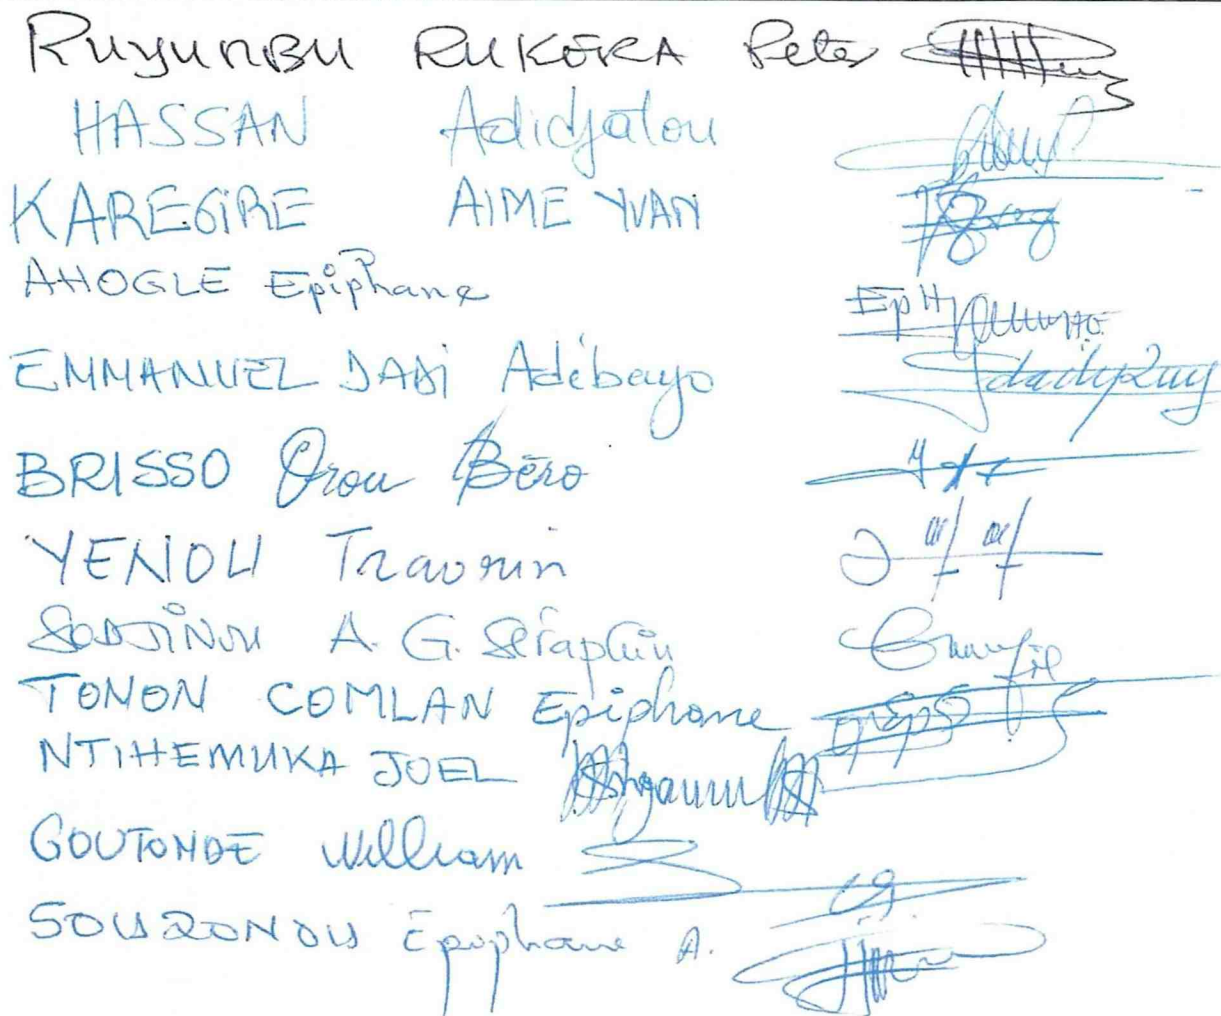 RUYUNBU RUKERA Peter
HASSAN Adidjatou
KAREGIRE AIME YVAN
AHOGLE Epiphane
EMMANUEL DADI Adébayo
BRISSO Orou Béro
YENOU Traorin
SODJINOU A. G. Séraphin
TONON COMLAN Epiphane
NTIHEMUKA JOEL
GOUTONDE William
SOUZONOU Epiphane A.